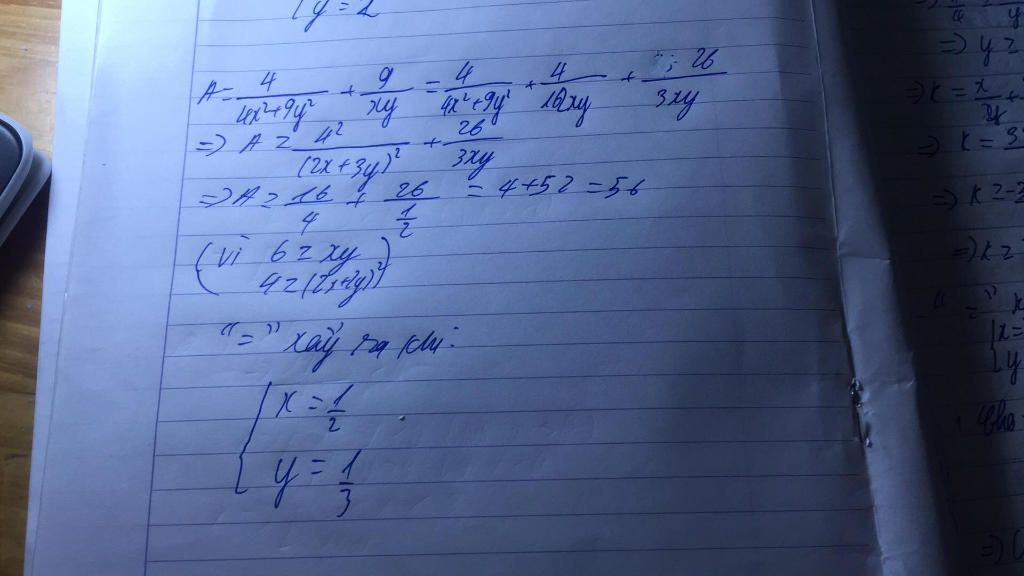 y = 2
A = 4/(4x²+9y²) + 9/xy = 4/(4x²+9y²) + 4/12xy + 26/3xy
=> A ≥ 4²/(2x+3y)² + 26/3xy
=> A ≥ 16/4 + 26/(1/2) = 4+52 = 56
(vì 6 ≥ xy
4 ≥ (2x+3y)²)
"=" xảy ra khi:
{ x = 1/2
y = 1/3
=> y =
=> K =
=> K = 3
=> K ≥
=> K ≥
"="
x =
y
Cho
=> (